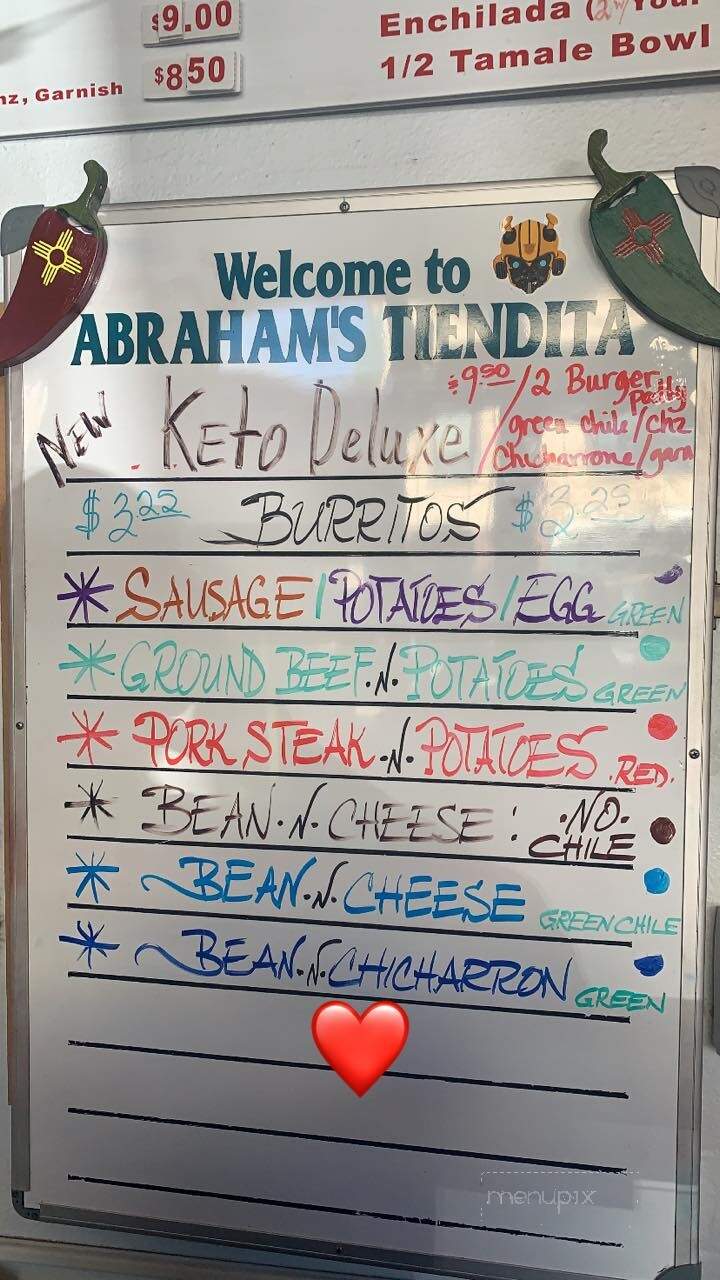 $9.00
Enchilada (2
nz, Garnish
$8.50
1/2 Tamale Bowl
Welcome to
ABRAHAM'S TIENDITA
NEW
Keto Deluxe
$9.50/2 Burger
Patty
/green chile/chz
Chicharrone/garn
$3.25 BURRITOS $3.25
* SAUSAGE/POTATOES/EGG GREEN
* GROUND BEEF.N.POTATOES GREEN
* PORK STEAK.N.POTATOES .RED.
* BEAN.N.CHEESE: .NO.
CHILE
* ~BEAN.N.CHEESE GREEN CHILE
* ~BEAN.N.CHICHARRON GREEN
menupix